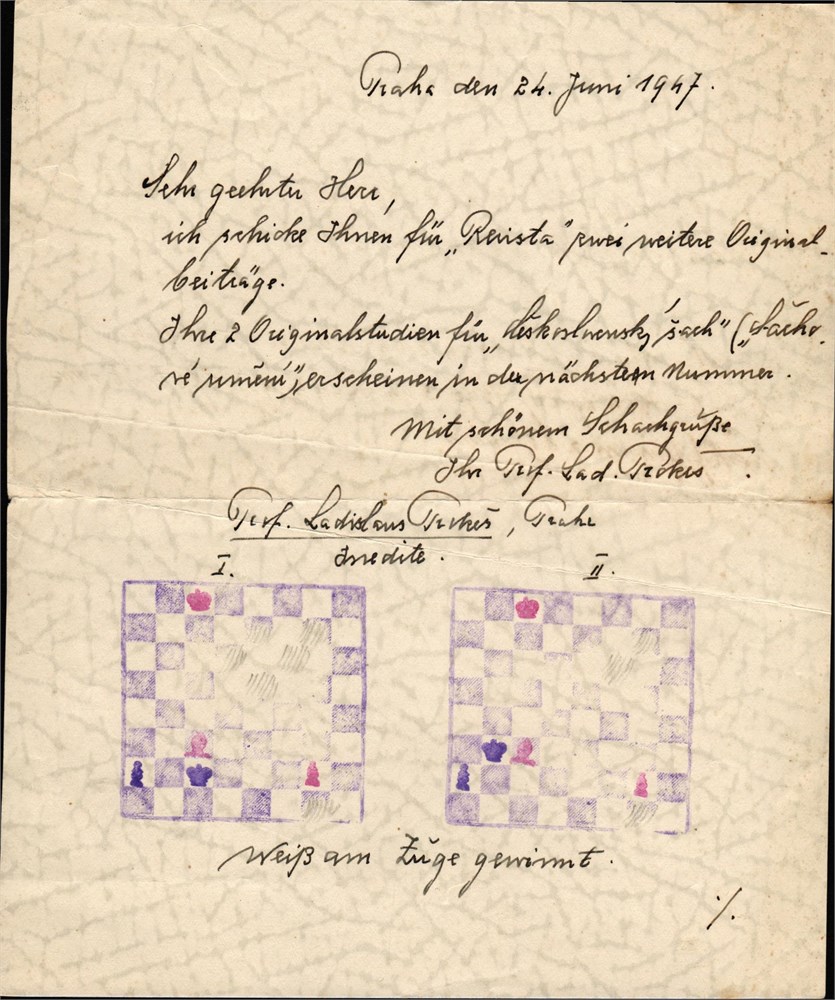 Praha den 24. Juni 1947.
Sehr geehrter Herr,
ich schicke Ihnen für „Revista" zwei weitere Original-
beiträge.
Ihre 2 Originalstudien für „Československý šach" („Šacho-
vé umění"), erscheinen in der nächsten Nummer.
Mit schönem Schachgruße
Ihr Prof. Lad. Prokeš.
Prof. Ladislaus Prokeš, Praha
Inedite.
I. II.
Weiß am Zuge gewinnt.
./.